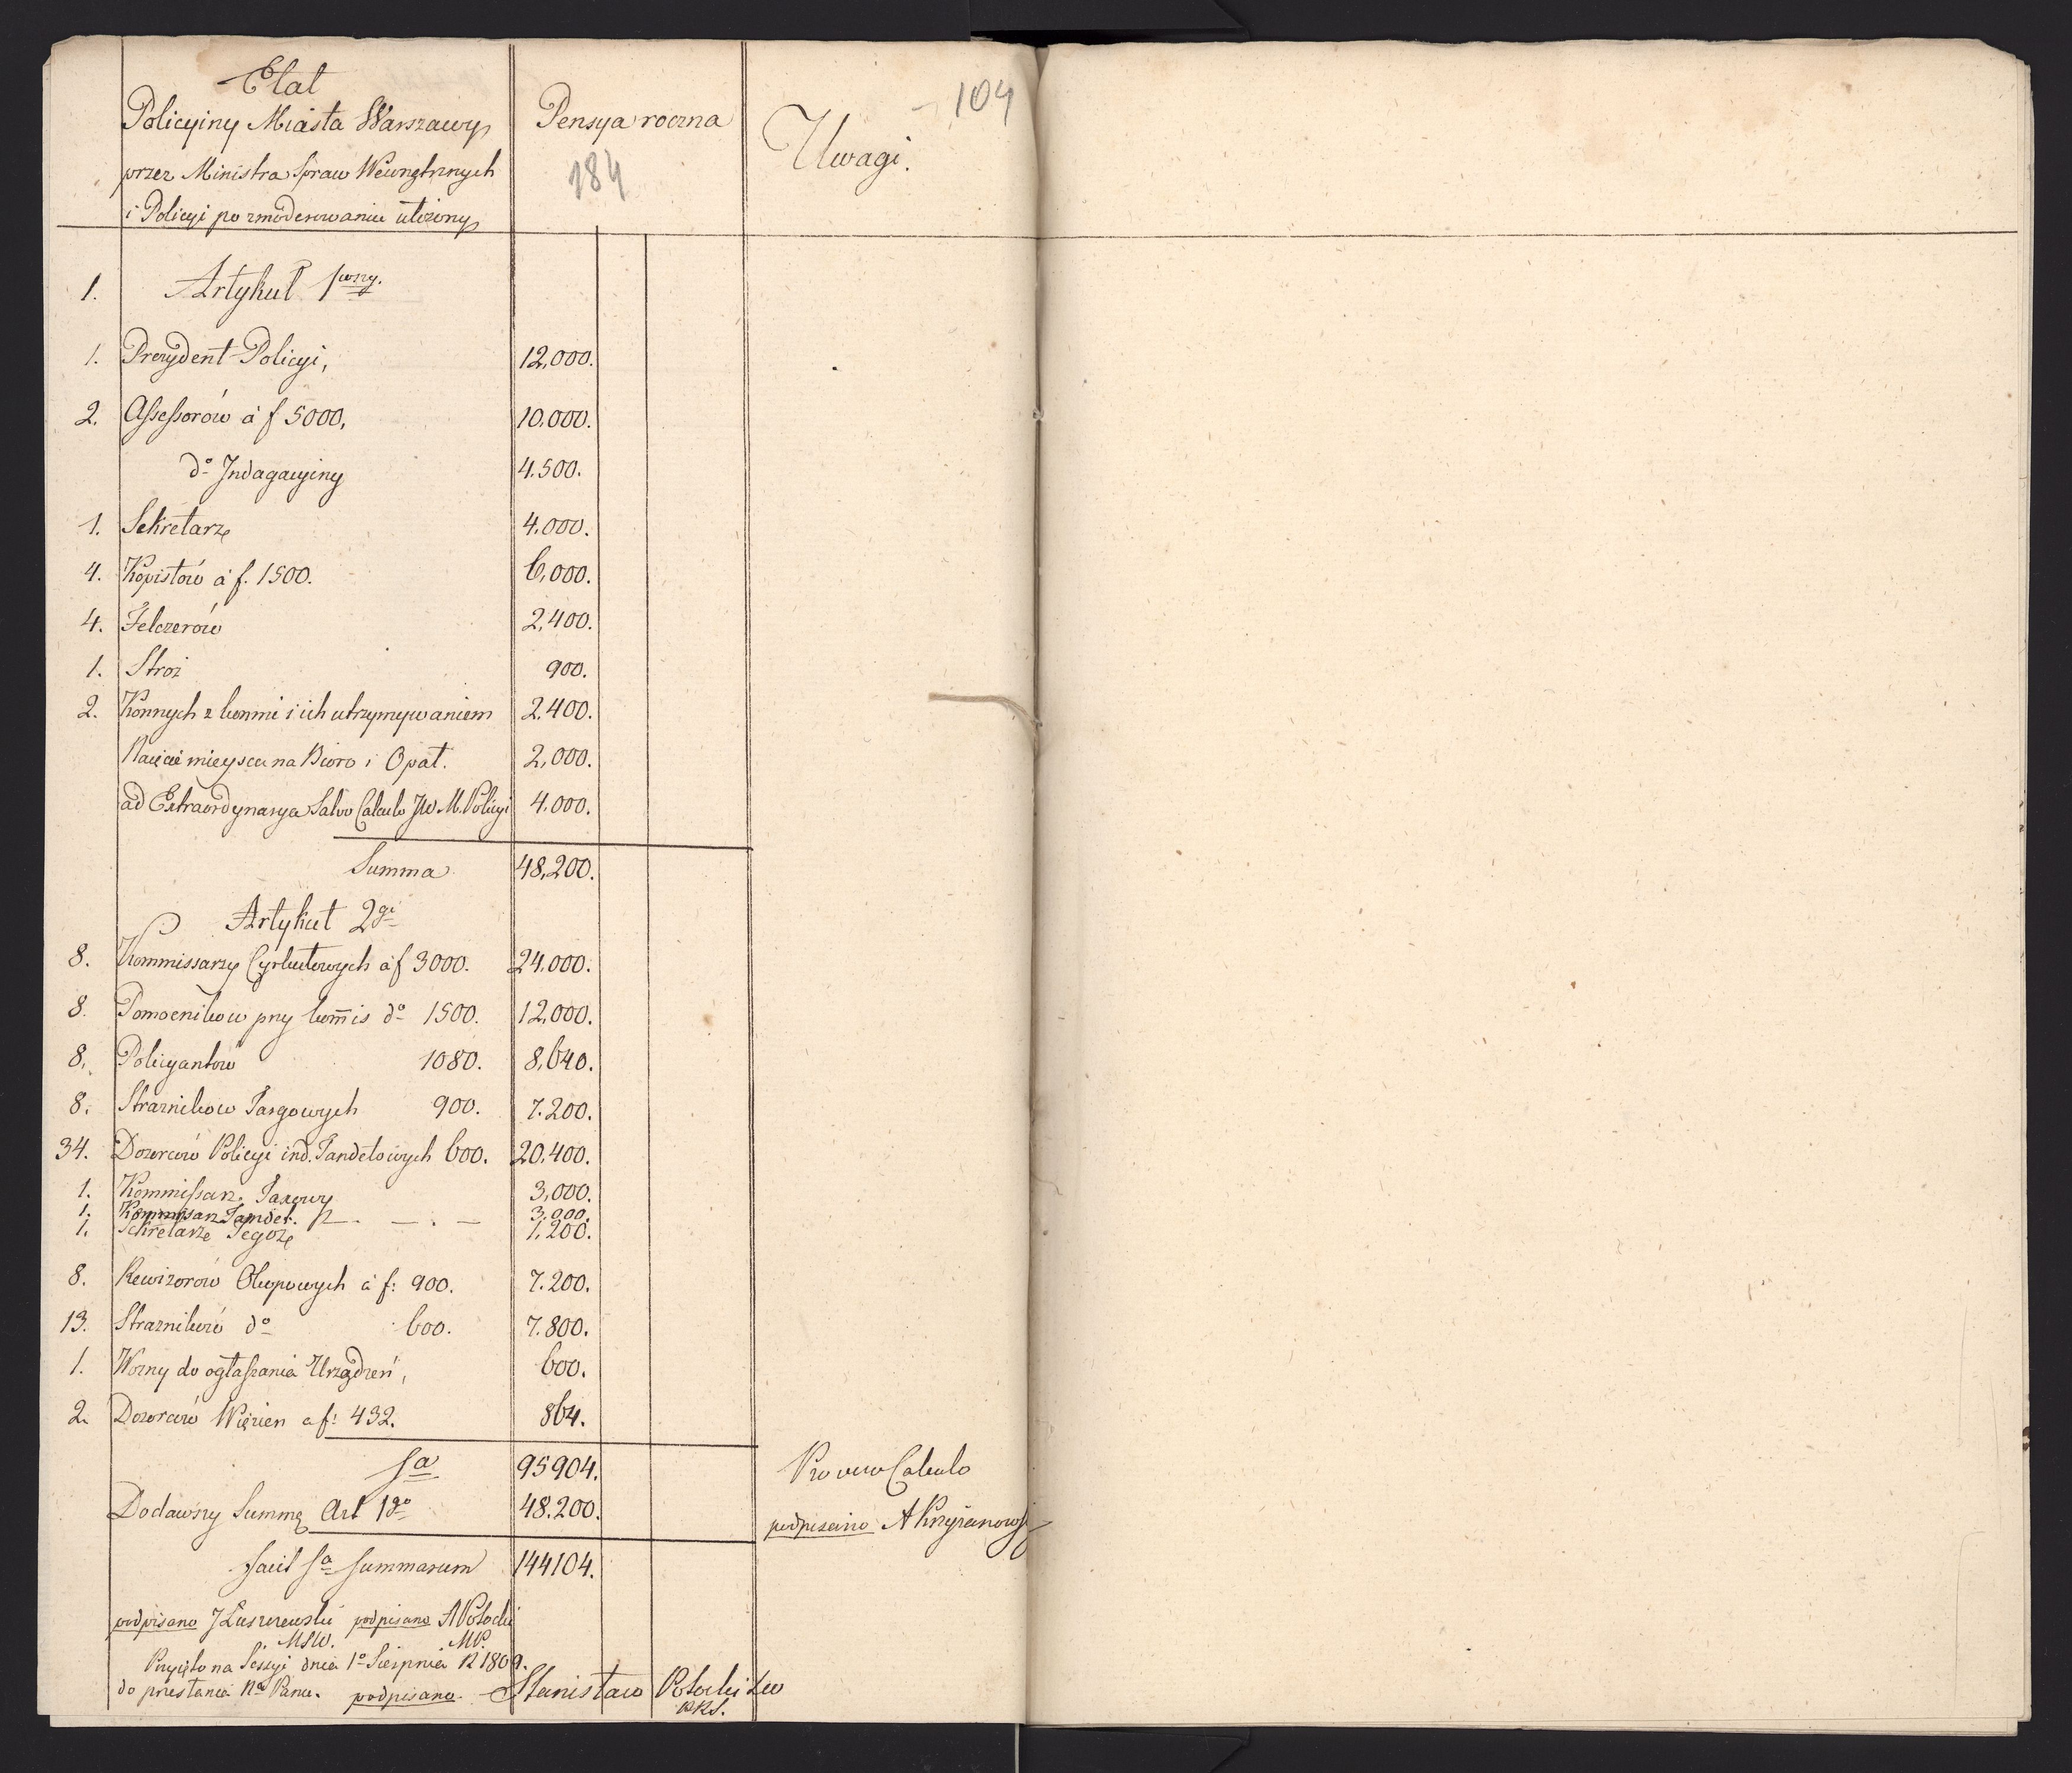 Etat
Policyiny Miasta Warszawy
przez Ministra Spraw Wewnętrznych
i Policyi po zmoderowaniu ułożony
Pensya roczna
184
Uwagi.
104
1. Artykuł 1wszy.
1. Prezydent Policyi, 12,000.
2. Assessorów á f 5000, 10,000.
do Indagacyiny 4.500.
1. Sekretarz 4,000.
4. Kopistów á f. 1500. 6,000.
4. Felczerów 2,400.
1. Stroz 900.
2. Konnych z konmi i ich utrzymywaniem 2.400.
Naięcie mieysca na Bioro i Opał. 2,000.
ad Extraordynarya Salvo Calculo JW M. Policyi 4.000.
Summa 48,200.
Artykuł 2gi
8. Kommissarzy Cyrkułowych á f 3000. 24,000.
8. Pomocnikow przy kom̄is do 1500. 12,000.
8. Policyantow 1080. 8,640.
8. Straznikow Targowych 900. 7.200.
34. Dozorców Policyi ind. Tandetowych 600. 20,400.
1. Kommissarz Taxowy 3,000.
1. Kommissarz Tandet. 3.000.
1. Sekretarz Tegoz 1,200.
8. Rewizorów Okopowych á f: 900. 7.200.
13. Straznikow do 600. 7.800.
1. Wozny do ogłaszania Urządzeń, 600.
2. Dozorców Więzien a f: 432. 864.
Sa 95904.
Dodawszy Summę Art 1go 48.200.
Facit Sa Summarum 144104.
Pro vero Calculo
podpisano A Krzyżanowsk
podpisano J Łuszczewski podpisano A Potocki
MSW. MP.
Przyięto na Sessyi dnia 1o Sierpnia R 1809.
do przesłania Na Panu. podpisano. Stanisław Potocki